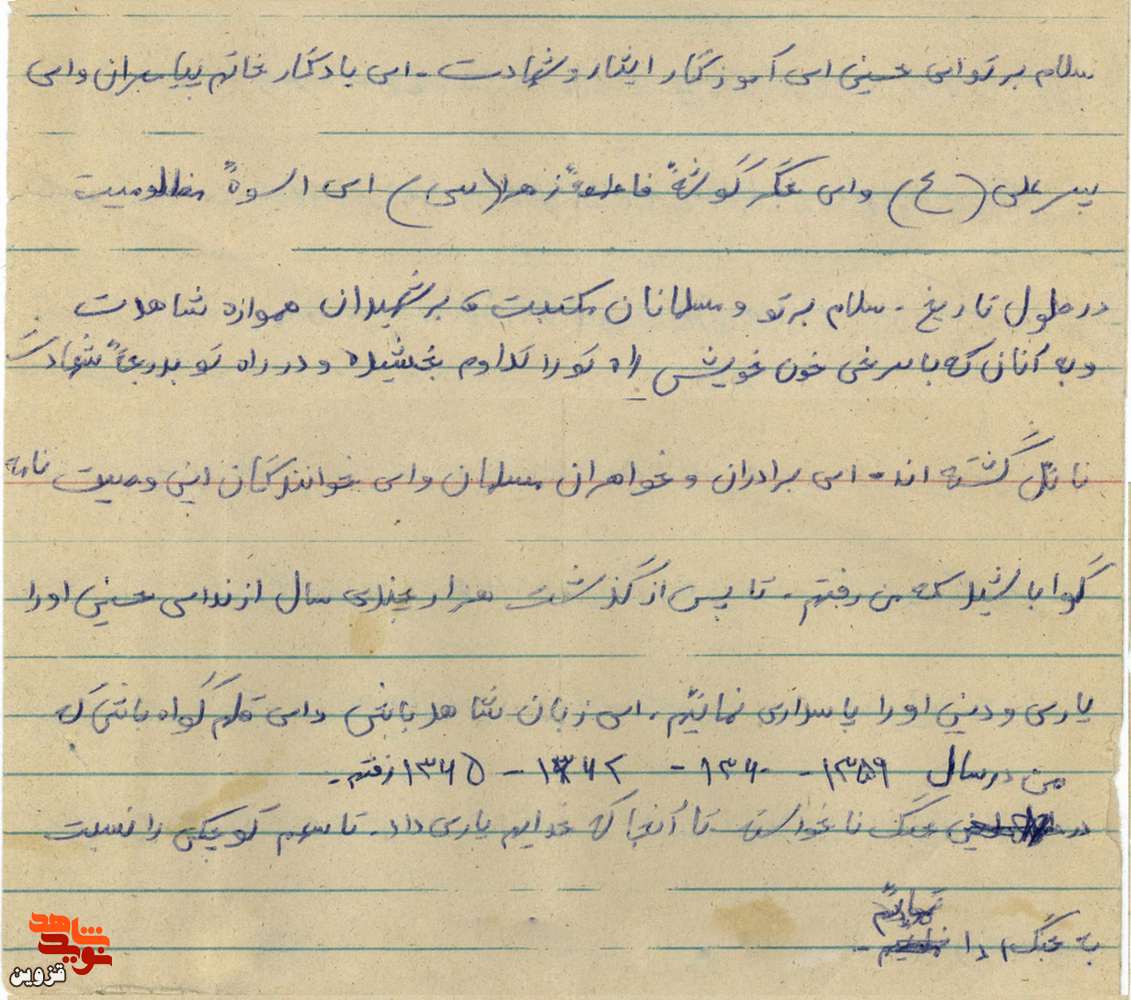 سلام بر تو ای حسین ای آموزگار ایثار و شهادت - ای یادگار خاتم پیامبران و ای
پسر علی (ع) و ای جگرگوشهٔ فاطمهٔ زهرا (س) ای اسوهٔ مظلومیت
در طول تاریخ - سلام بر تو و مسلمانان مکتبت و بر شهیدان همواره شاهدت
و به آنان که با سرخی خون خویش راه تو را تداوم بخشیده و در راه تو بدرجهٔ شهادت
نائل گشته اند - ای برادران و خواهران مسلمان و ای خوانندگان این وصیت نامه
گواه باشید که من رفتم - تا پس از گذشت هزار و چندی سال از ندای حسین او را
یاری و دین او را پاسداری نمایم، ای زبان شاهد باش و ای قلم گواه باش که
من در سال ۱۳۵۹ - ۱۳۶۰ - ۱۳۶۲ - ۱۳۶۵ رفتم -
در جنگ ناخواسته تا آنجا که خدایم یاری داد - تا سهم کوچکی را نسبت
به جنگ ادا نمایم -
شاهد
نوید
قزوین